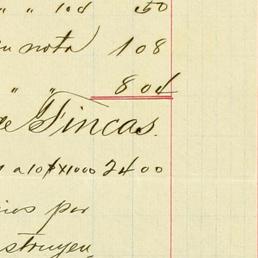 " " 10d 50
nota 108
" " 804
de Fincas.
a 10 f x 1000 2400
ios por
struyen